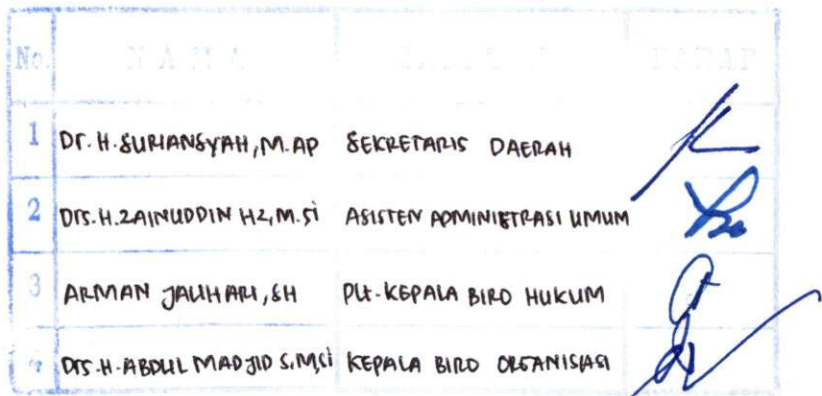 No. N A M A JABATAN PARAF
1 Dr. H. SURIANSYAH, M.AP SEKRETARIS DAERAH
2 Drs. H. ZAINUDDIN HZ, M.Si ASISTEN ADMINISTRASI UMUM
3 ARMAN JAUHARI, SH Plt. KEPALA BIRO HUKUM
4 Drs. H. ABDUL MADJID S, M.Si KEPALA BIRO ORGANISIASI